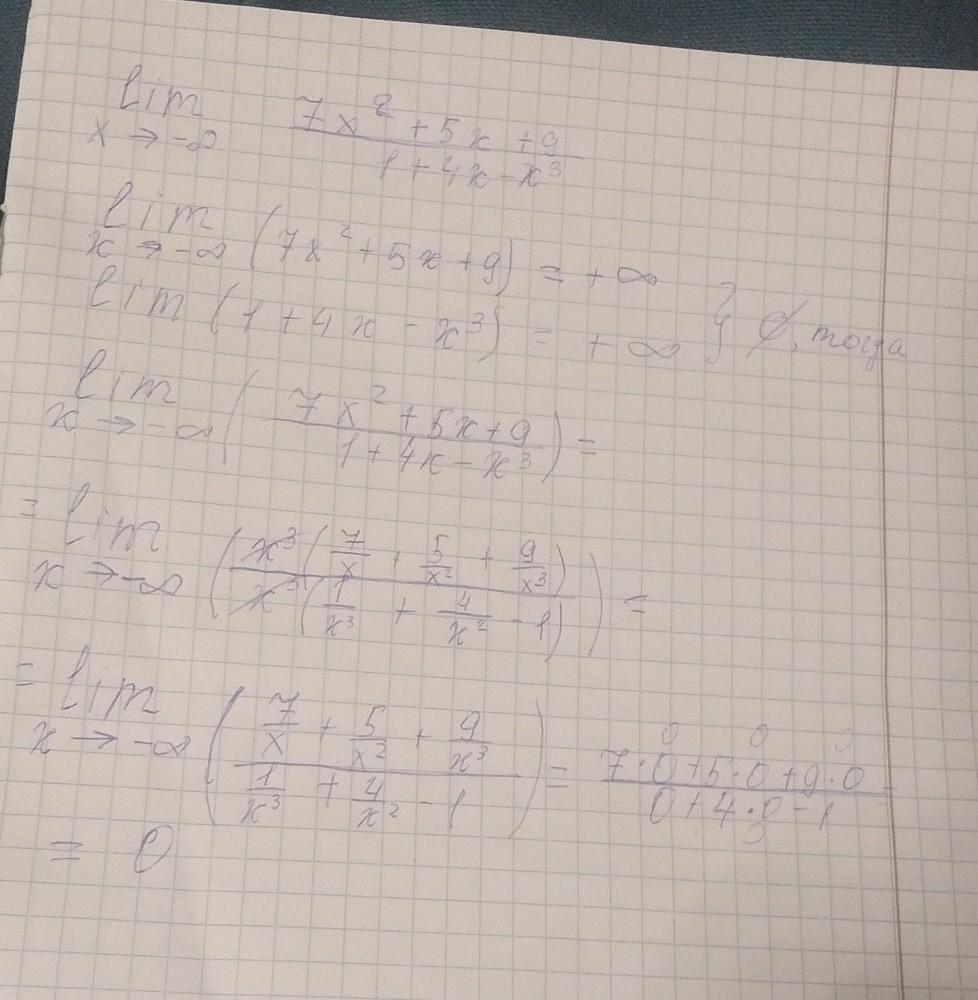 lim x → -∞ (7x² + 5x + 9)/(1 + 4x - x³)
lim x → -∞ (7x² + 5x + 9) = +∞
lim (1 + 4x - x³) = +∞ } ∅, тогда
lim x → -∞ ((7x² + 5x + 9)/(1 + 4x - x³)) =
= lim x → -∞ ((x³(7/x + 5/x² + 9/x³))/(x³(1/x³ + 4/x² - 1))) =
= lim x → -∞ ((7/x + 5/x² + 9/x³)/(1/x³ + 4/x² - 1)) = (7·0 + 5·0 + 9·0)/(0 + 4·0 - 1)
= 0